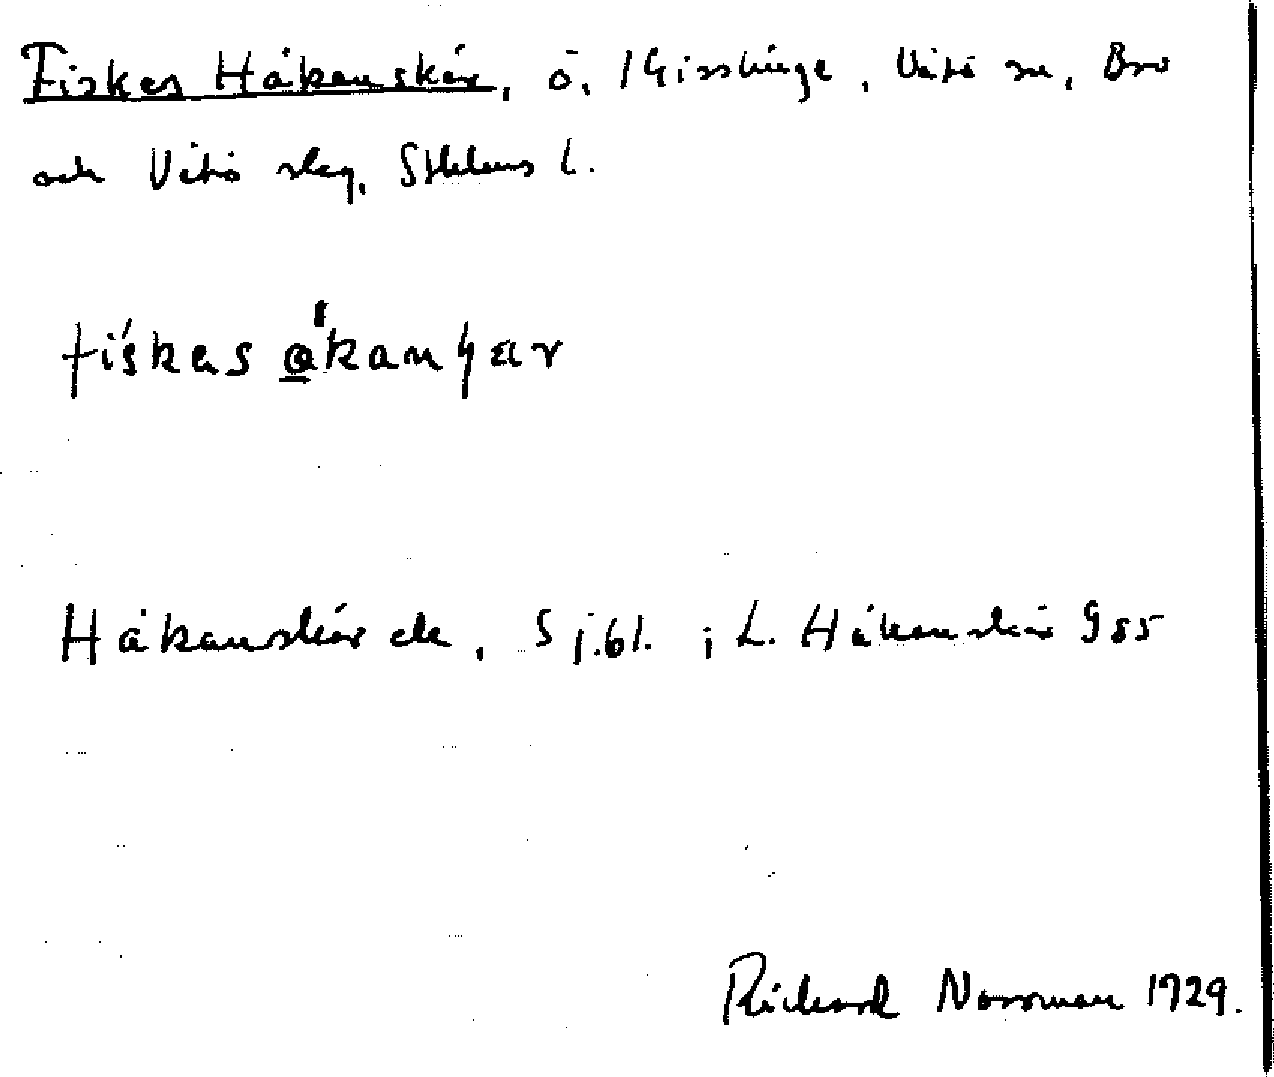 Fiskes Håkanskär, ö, Gisslinge, Vätö sn, Bro
och Vätö slag, Sthlms l.
Håkanskär ek. S j.bl. ; L. Håkanskär G 55
Rickard Norrman 1929.